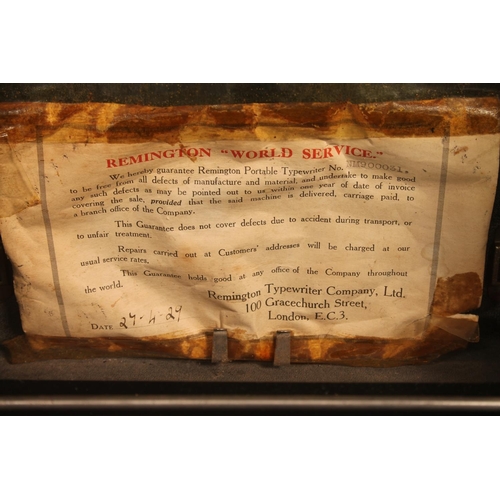 REMINGTON "WORLD SERVICE."
We hereby guarantee Remington Portable Typewriter No.
to be free from all defects of manufacture and material, and undertake to make good
any such defects as may be pointed out to us within one year of date of invoice
covering the sale, provided that the said machine is delivered, carriage paid, to
a branch office of the Company.
This Guarantee does not cover defects due to accident during transport, or
to unfair treatment.
Repairs carried out at Customers' addresses will be charged at our
usual service rates,
This Guarantee holds good at any office of the Company throughout
the world.
Remington Typewriter Company, Ltd.
100 Gracechurch Street,
London, E.C.3.
DATE 27-4-29